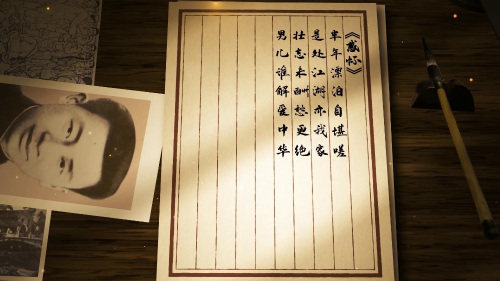 《感怀》
半年漂泊自堪嗟
是处江湖亦我家
壮志未酬愁更绝
男儿谁解爱中华